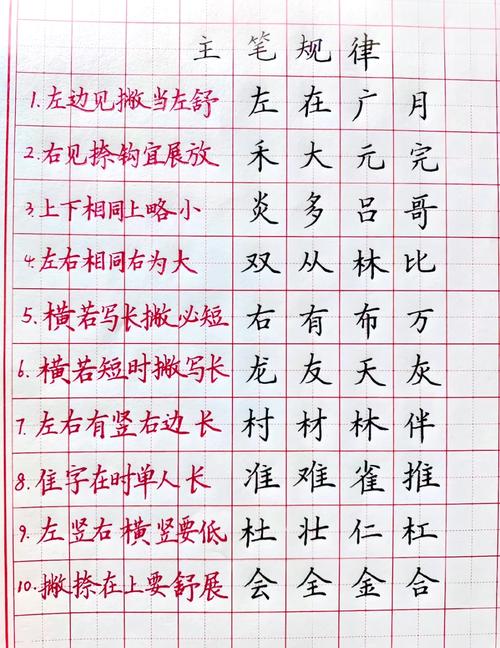 主笔规律
1.左边见撇当左舒 左在广月
2.右见捺钩宜展放 禾大元完
3.上下相同上略小 炎多吕哥
4.左右相同右为大 双从林比
5.横若写长撇必短 右有布万
6.横若短时撇写长 龙友天灰
7.左右有竖右边长 村材林伴
8.隹字在时单人长 准难雀推
9.左竖右横竖要低 杜壮仁杠
10.撇捺在上要舒展 会全金合